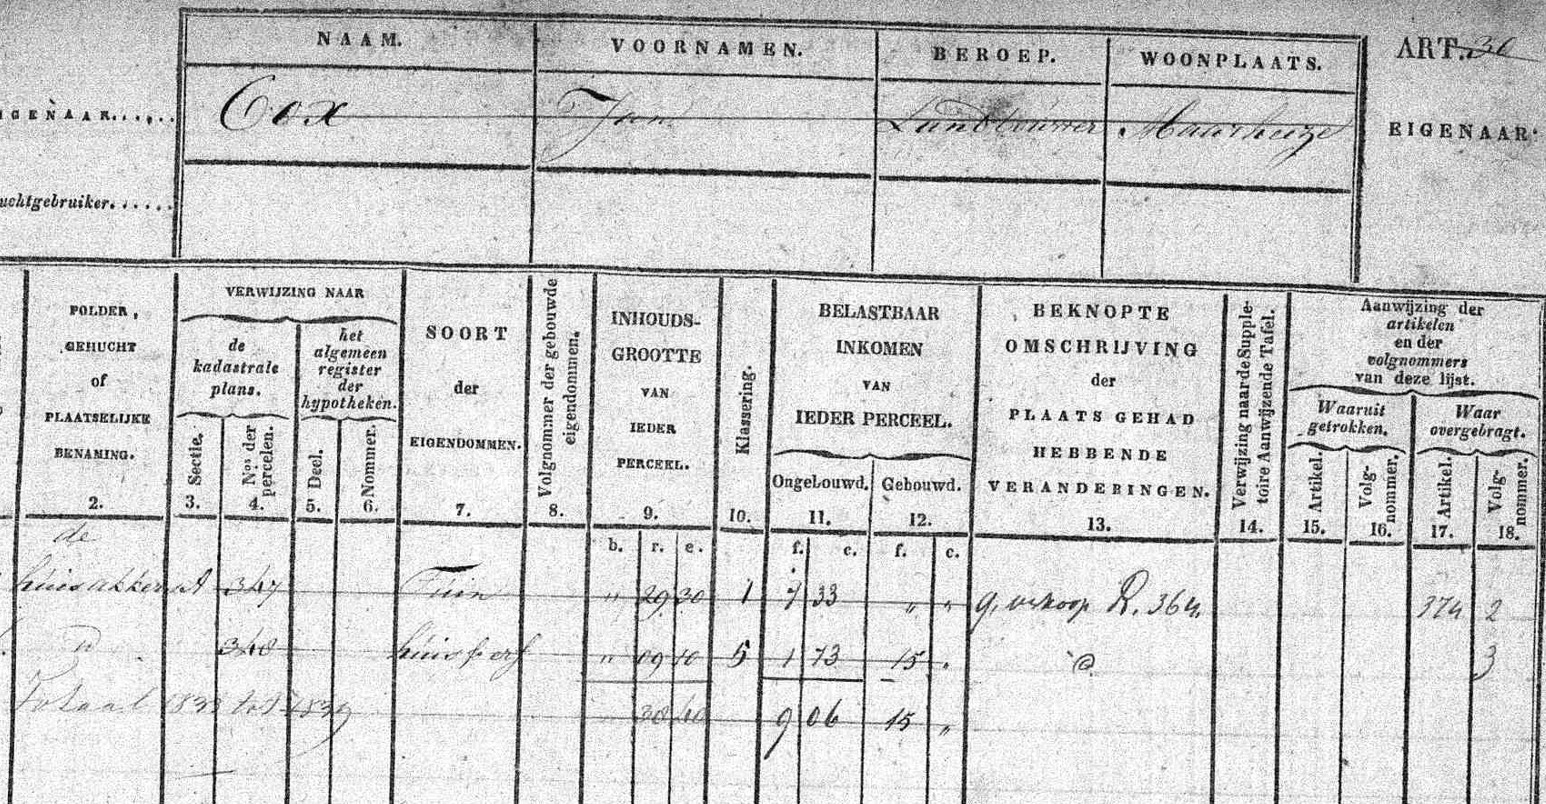 NAAM. VOORNAMEN. BEROEP. WOONPLAATS. ART. 30
IGENAAR...... Cox Jan Landbouwer Maarheeze EIGENAAR
uchtgebruiker......
POLDER,
GEHUCHT
of
PLAATSELIJKE
BENAMING.
2.
VERWIJZING NAAR
de
kadastrale
plans.
Sectie.
3.
Nos der
percelen.
4.
het
algemeen
register
der
hypotheken.
Deel.
5.
Nommer.
6.
SOORT
der
EIGENDOMMEN.
7.
Volgnommer der gebouwde
eigendommen.
8.
INHOUDS-
GROOTTE
VAN
IEDER
PERCEEL.
9.
Klassering.
10.
BELASTBAAR
INKOMEN
VAN
IEDER PERCEEL.
Ongebouwd.
11.
Gebouwd.
12.
BEKNOPTE
OMSCHRIJVING
der
PLAATS GEHAD
HEBBENDE
VERANDERINGEN.
13.
Verwijzing naar de Supple-
toire Aanwijzende Tafel.
14.
Aanwijzing der
artikelen
en der
volgnommers
van deze lijst.
Waaruit
getrokken.
Artikel.
15.
Volg-
nommer.
16.
Waar
overgebragt.
Artikel.
17.
Volg-
nommer.
18.
b. r. e. f. c. f. c.
de
huisakker A 347 Tuin " 29 30 1 7 33 " " verkoop R. 364 374 2
348 huis & erf " 09 10 5 1 73 15 " 3
Totaal 1833 tot 1839 38 40 9 06 15 "